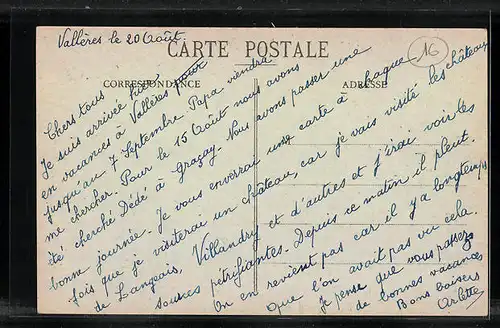 Vallères le 20 Août.
16
CARTE POSTALE
CORRESPONDANCE
ADRESSE
Chers tous
Je suis arrivée hier
en vacances à Vallères pour
jusqu'au 7 Septembre. Papa viendra
me chercher. Pour le 15 Août nous avons
été cherché Dédé à Graçay. Nous avons passer une
bonne journée. Je vous enverrai une carte à chaque
fois que je visiterai un château, car je vais visité les château
de Langeais, Villandry et d'autres et j'irai voir les
sources pétrifiantes. Depuis ce matin il pleut.
On en revient pas car il y a longtemps
que l'on avait pas vu cela.
Je pense que vous passez
de bonnes vacances
Bons baisers
Arlette